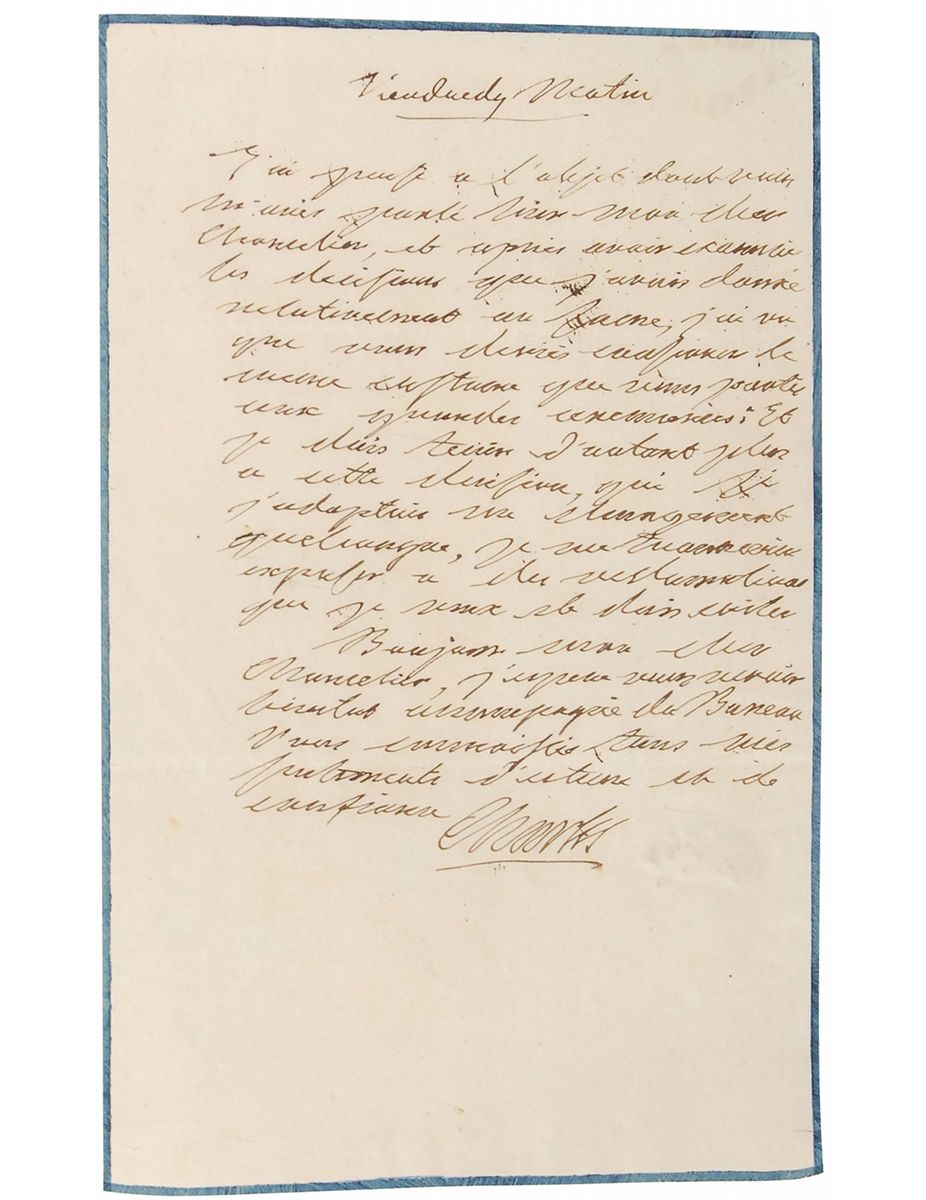 Vendredy Matin
J'ai pensé a l'objet dont vous
m'avés parlé hier mon cher
Chancelier, et après avoir examiné
les décisions que j'avois donné
relativement au Sacre, j'ai vu
que vous deviés conserver le
même costume que vous portés
aux grandes cérémonies: Et
je dois tenir d'autant plus
a cette décision, que si
j'adoptois un changement
quelconque, je me trouverois
exposé a des réclamations
que je veux et dois éviter
Bonjour mon cher
Chancelier, j'espère vous revoir
bientot accompagné du Bureau
Vous connoissés tous mes
sentiments d'estime et de
confiance
Charles